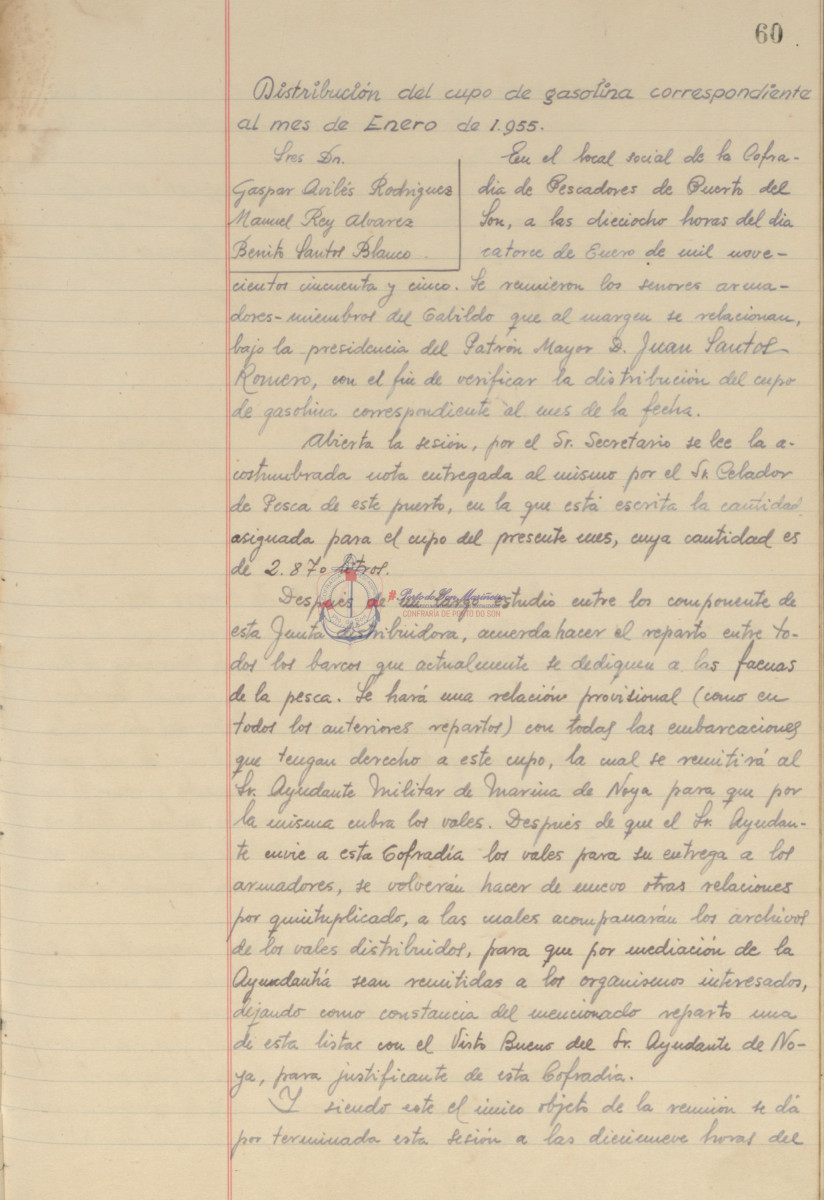 60
Distribución del cupo de gasolina correspondiente
al mes de Enero de 1.955.
Sres Dn.
Gaspar Avilés Rodriguez
Manuel Rey Alvarez
Benito Santos Blanco.
En el local social de la Cofra-
dia de Pescadores de Puerto del
Son, a las dieciocho horas del dia
catorce de Enero de mil nove-
cientos cincuenta y cinco. Se reunieron los senores arma-
dores-miembros del Cabildo que al margen se relacionan,
bajo la presidencia del Patrón Mayor D. Juan Santos
Romero, con el fin de verificar la distribución del cupo
de gasolina correspondiente al mes de la fecha.
Abierta la sesión, por el Sr. Secretario se lee la a-
costumbrada nota entregada al mismo por el Sr. Celador
de Pesca de este puerto, en la que está escrita la cantidad
asignada para el cupo del presente mes, cuya cantidad es
de 2.870 litros.
Después de un largo estudio entre los componente de
esta Junta distribuidora, acuerda hacer el reparto entre to-
dos los barcos que actualmente se dediquen a las faenas
de la pesca. Se hará una relación provisional (como en
todos los anteriores repartos) con todas las embarcaciones
que tengan derecho a este cupo, la cual se remitirá al
Sr. Ayudante Militar de Marina de Noya para que por
la misma cubra los vales. Después de que el Sr. Ayudan-
te envie a esta Cofradía los vales para su entrega a los
armadores, se volverán hacer de nuevo otras relaciones
por quintuplicado, a las cuales acompanarán los archivos
de los vales distribuidos, para que por mediación de la
Ayundantía sean remitidas a los organismos interesados,
dejando como constancia del mencionado reparto una
de esta listas con el Visto Bueno del Sr. Ayudante de No-
ya, para justificante de esta Cofradía.
Y siendo este el único objeto de la reunión se dá
por terminada esta sesión a las diecinueve horas del
CONFRARIA DE PORTO DO SON